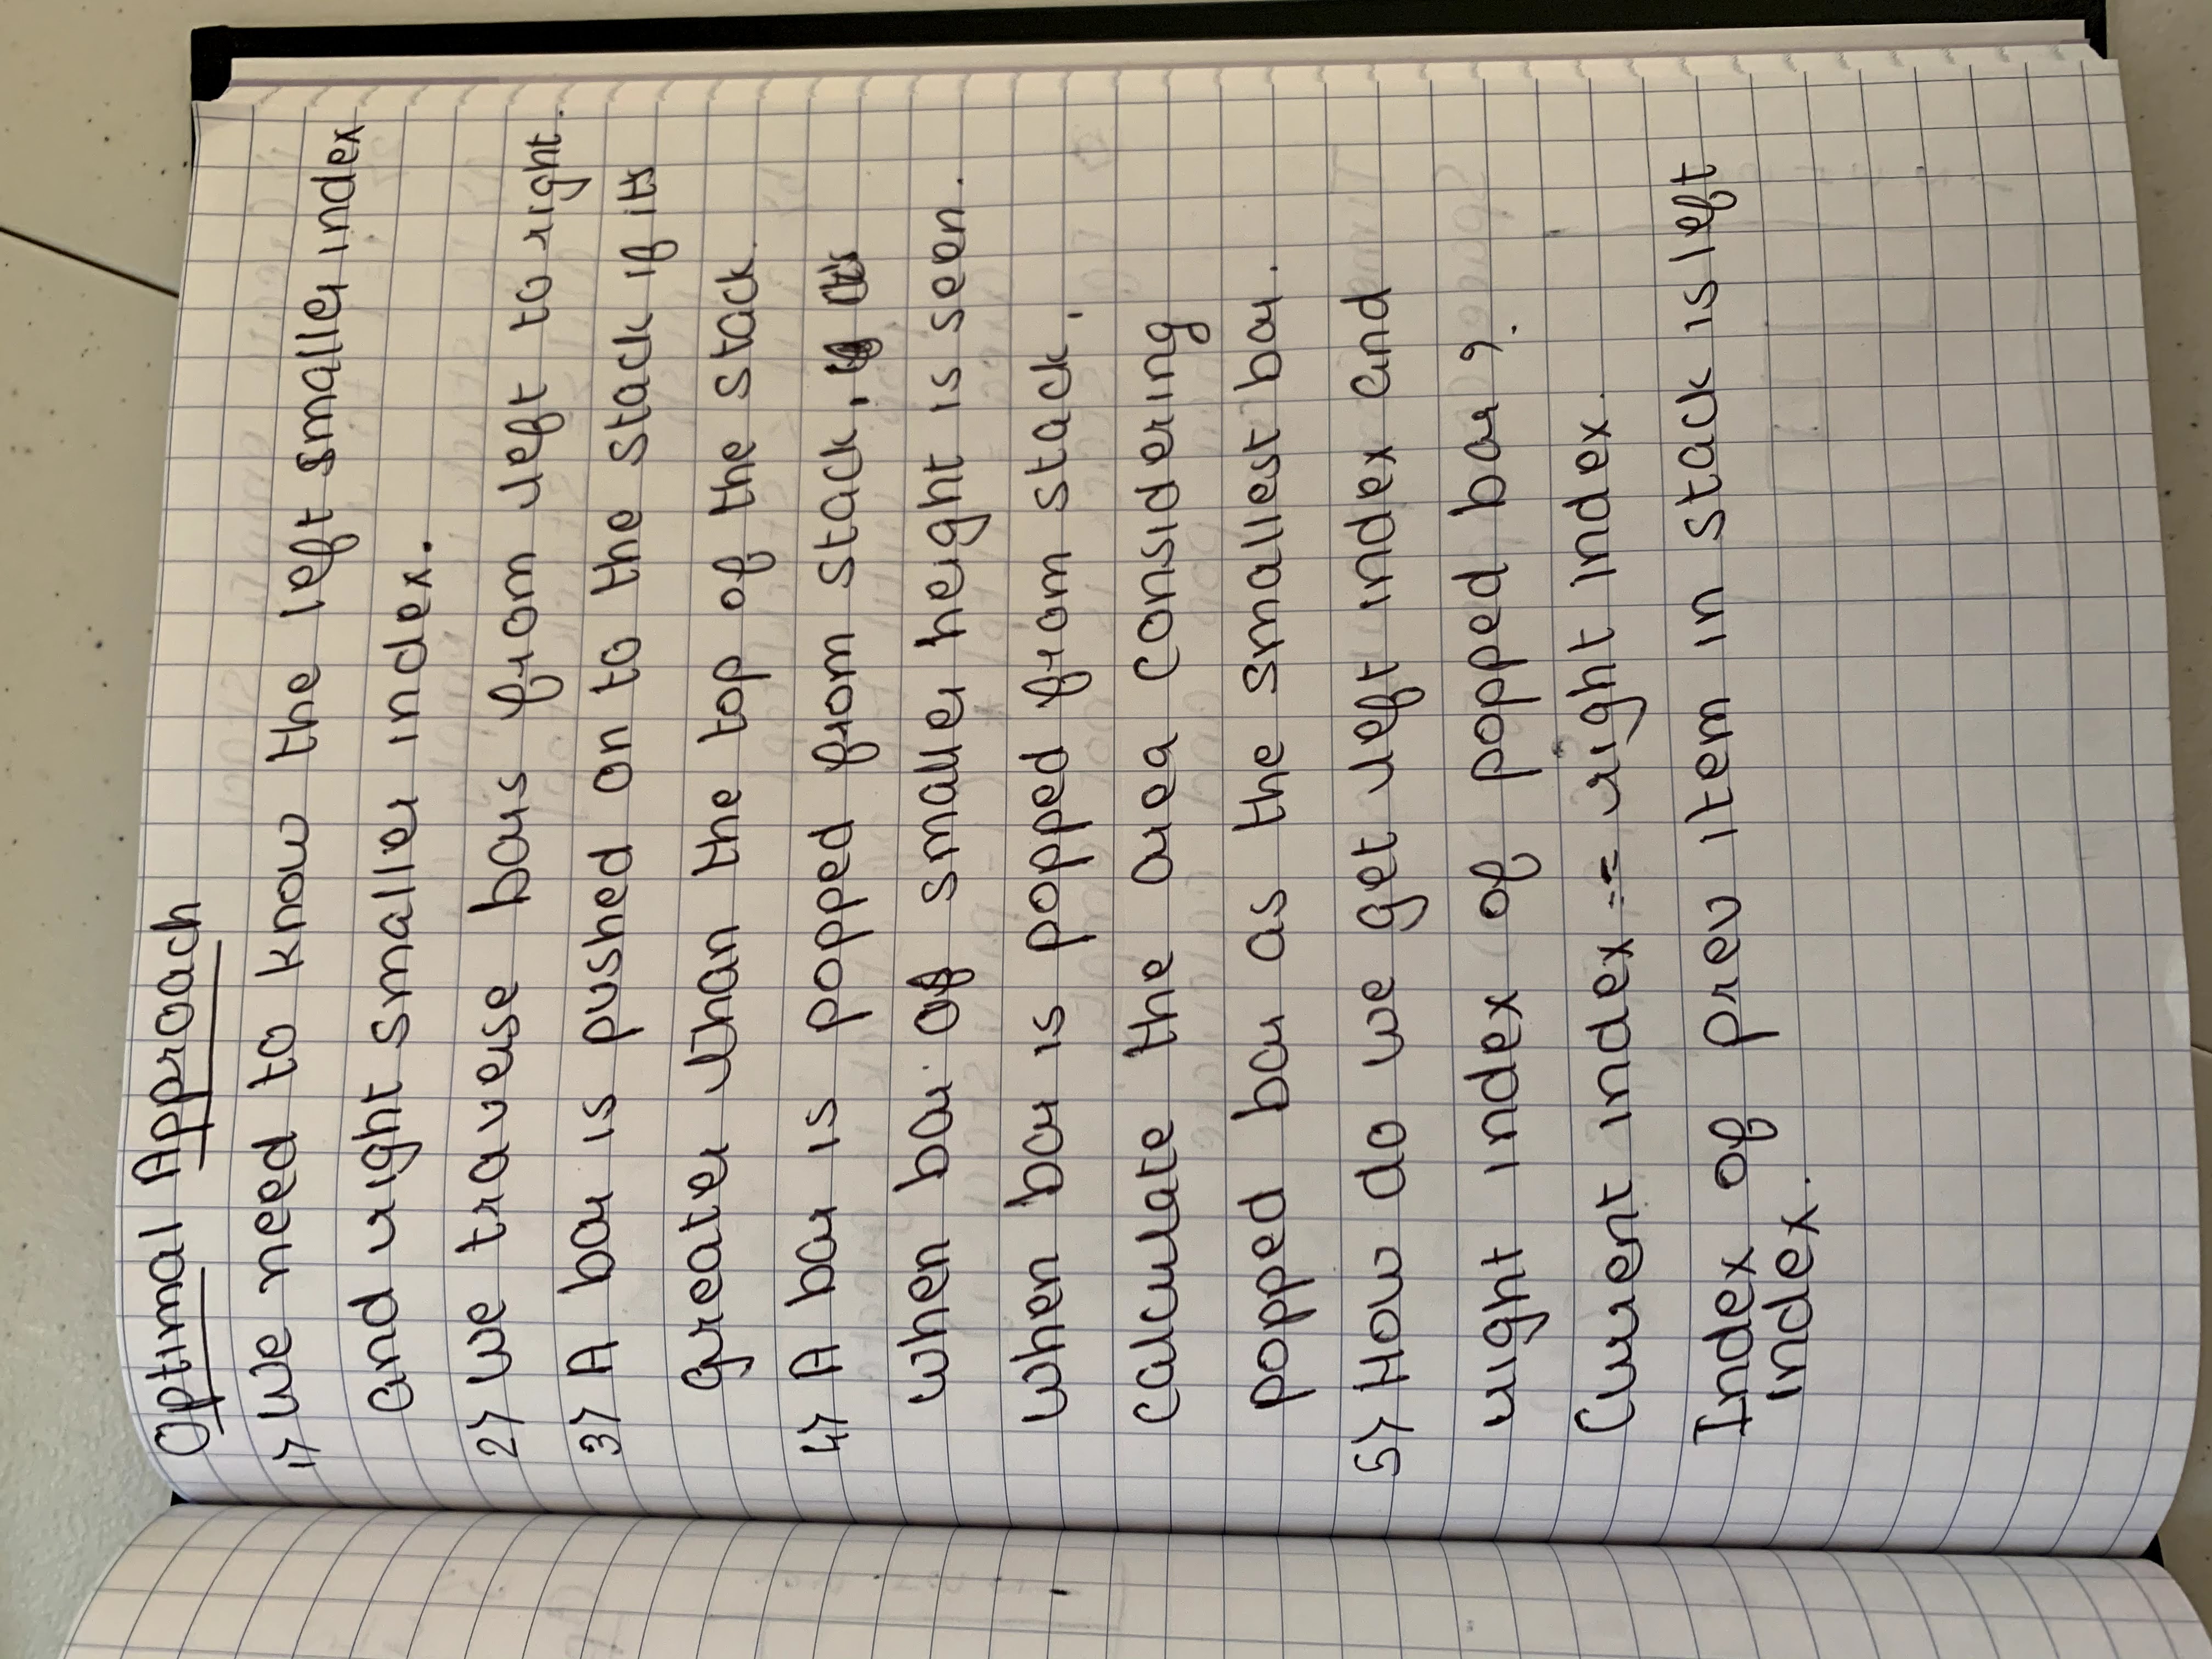 Optimal Approach
1> We need to know the left smaller index
and right smaller index.
2> We traverse bars from left to right.
3> A bar is pushed on to the stack if it's
greater than the top of the stack.
4> A bar is popped from stack, if it's
when bar of smaller height is seen.
When bar is popped from stack,
calculate the area considering
popped bar as the smallest bar.
5> How do we get left index and
right index of popped bar?
Current index = right index.
Index of prev item in stack is left
index.